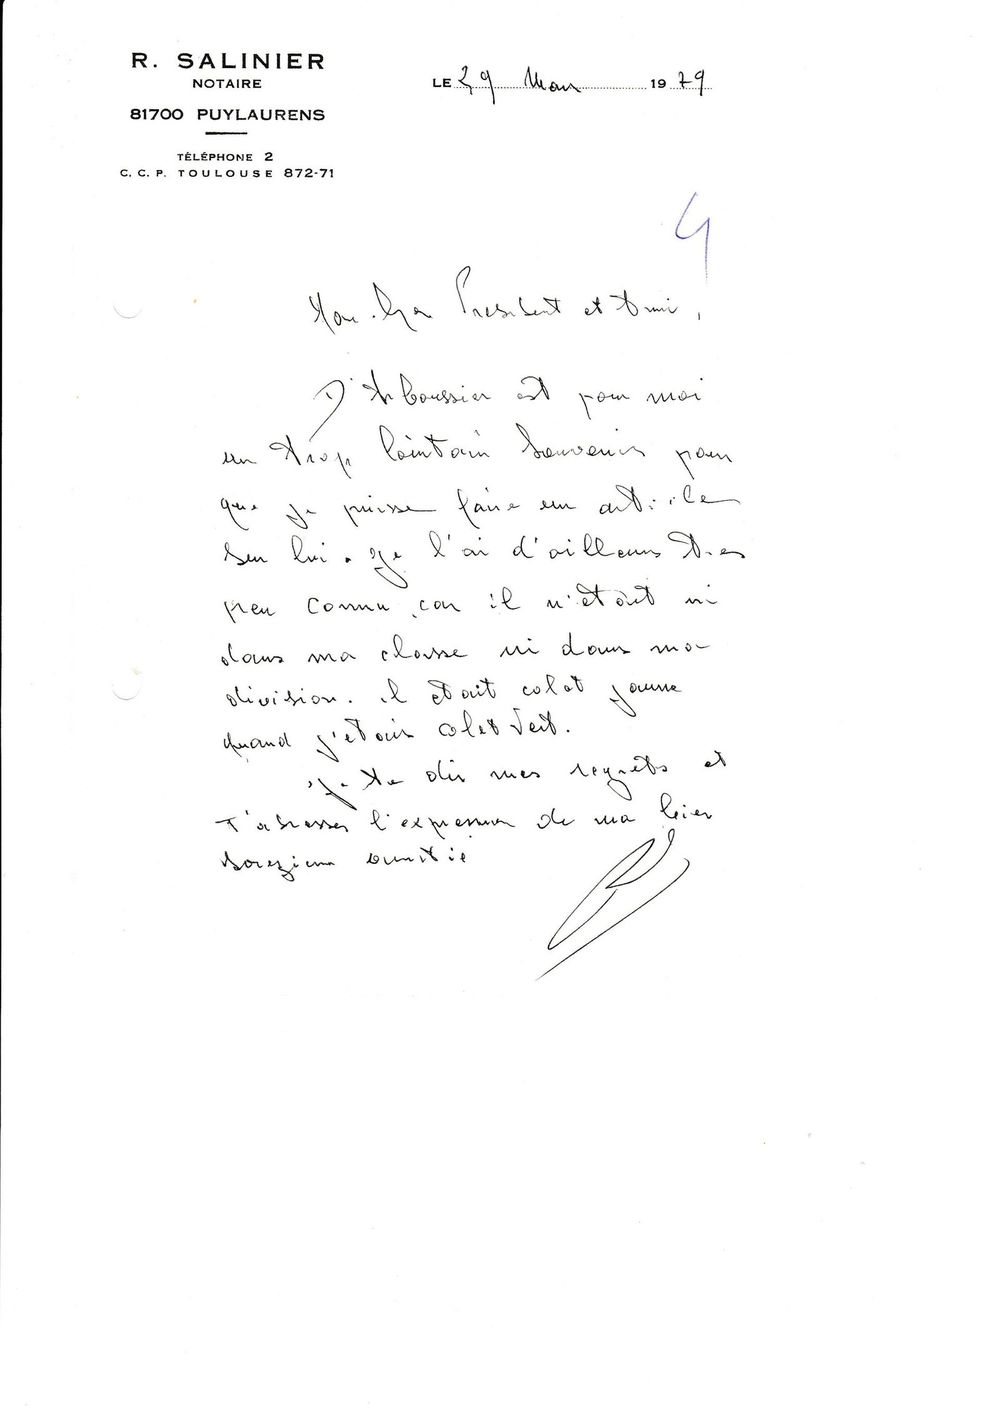 R. SALINIER
NOTAIRE
81700 PUYLAURENS
TÉLÉPHONE 2
C. C. P. TOULOUSE 872-71
LE 29 Mars 1979
4
Mon cher President et Ami,
D'Arboussier est pour moi
un trop lointain souvenir pour
que je puisse faire un article
sur lui. Je l'ai d'ailleurs tres
peu connu car il n'était ni
dans ma classe ni dans ma
division. il etait colet jaune
quand j'etais colet Vert.
je te dis mes regrets et
t'adresse l'expression de ma bien
sorezienne amitié